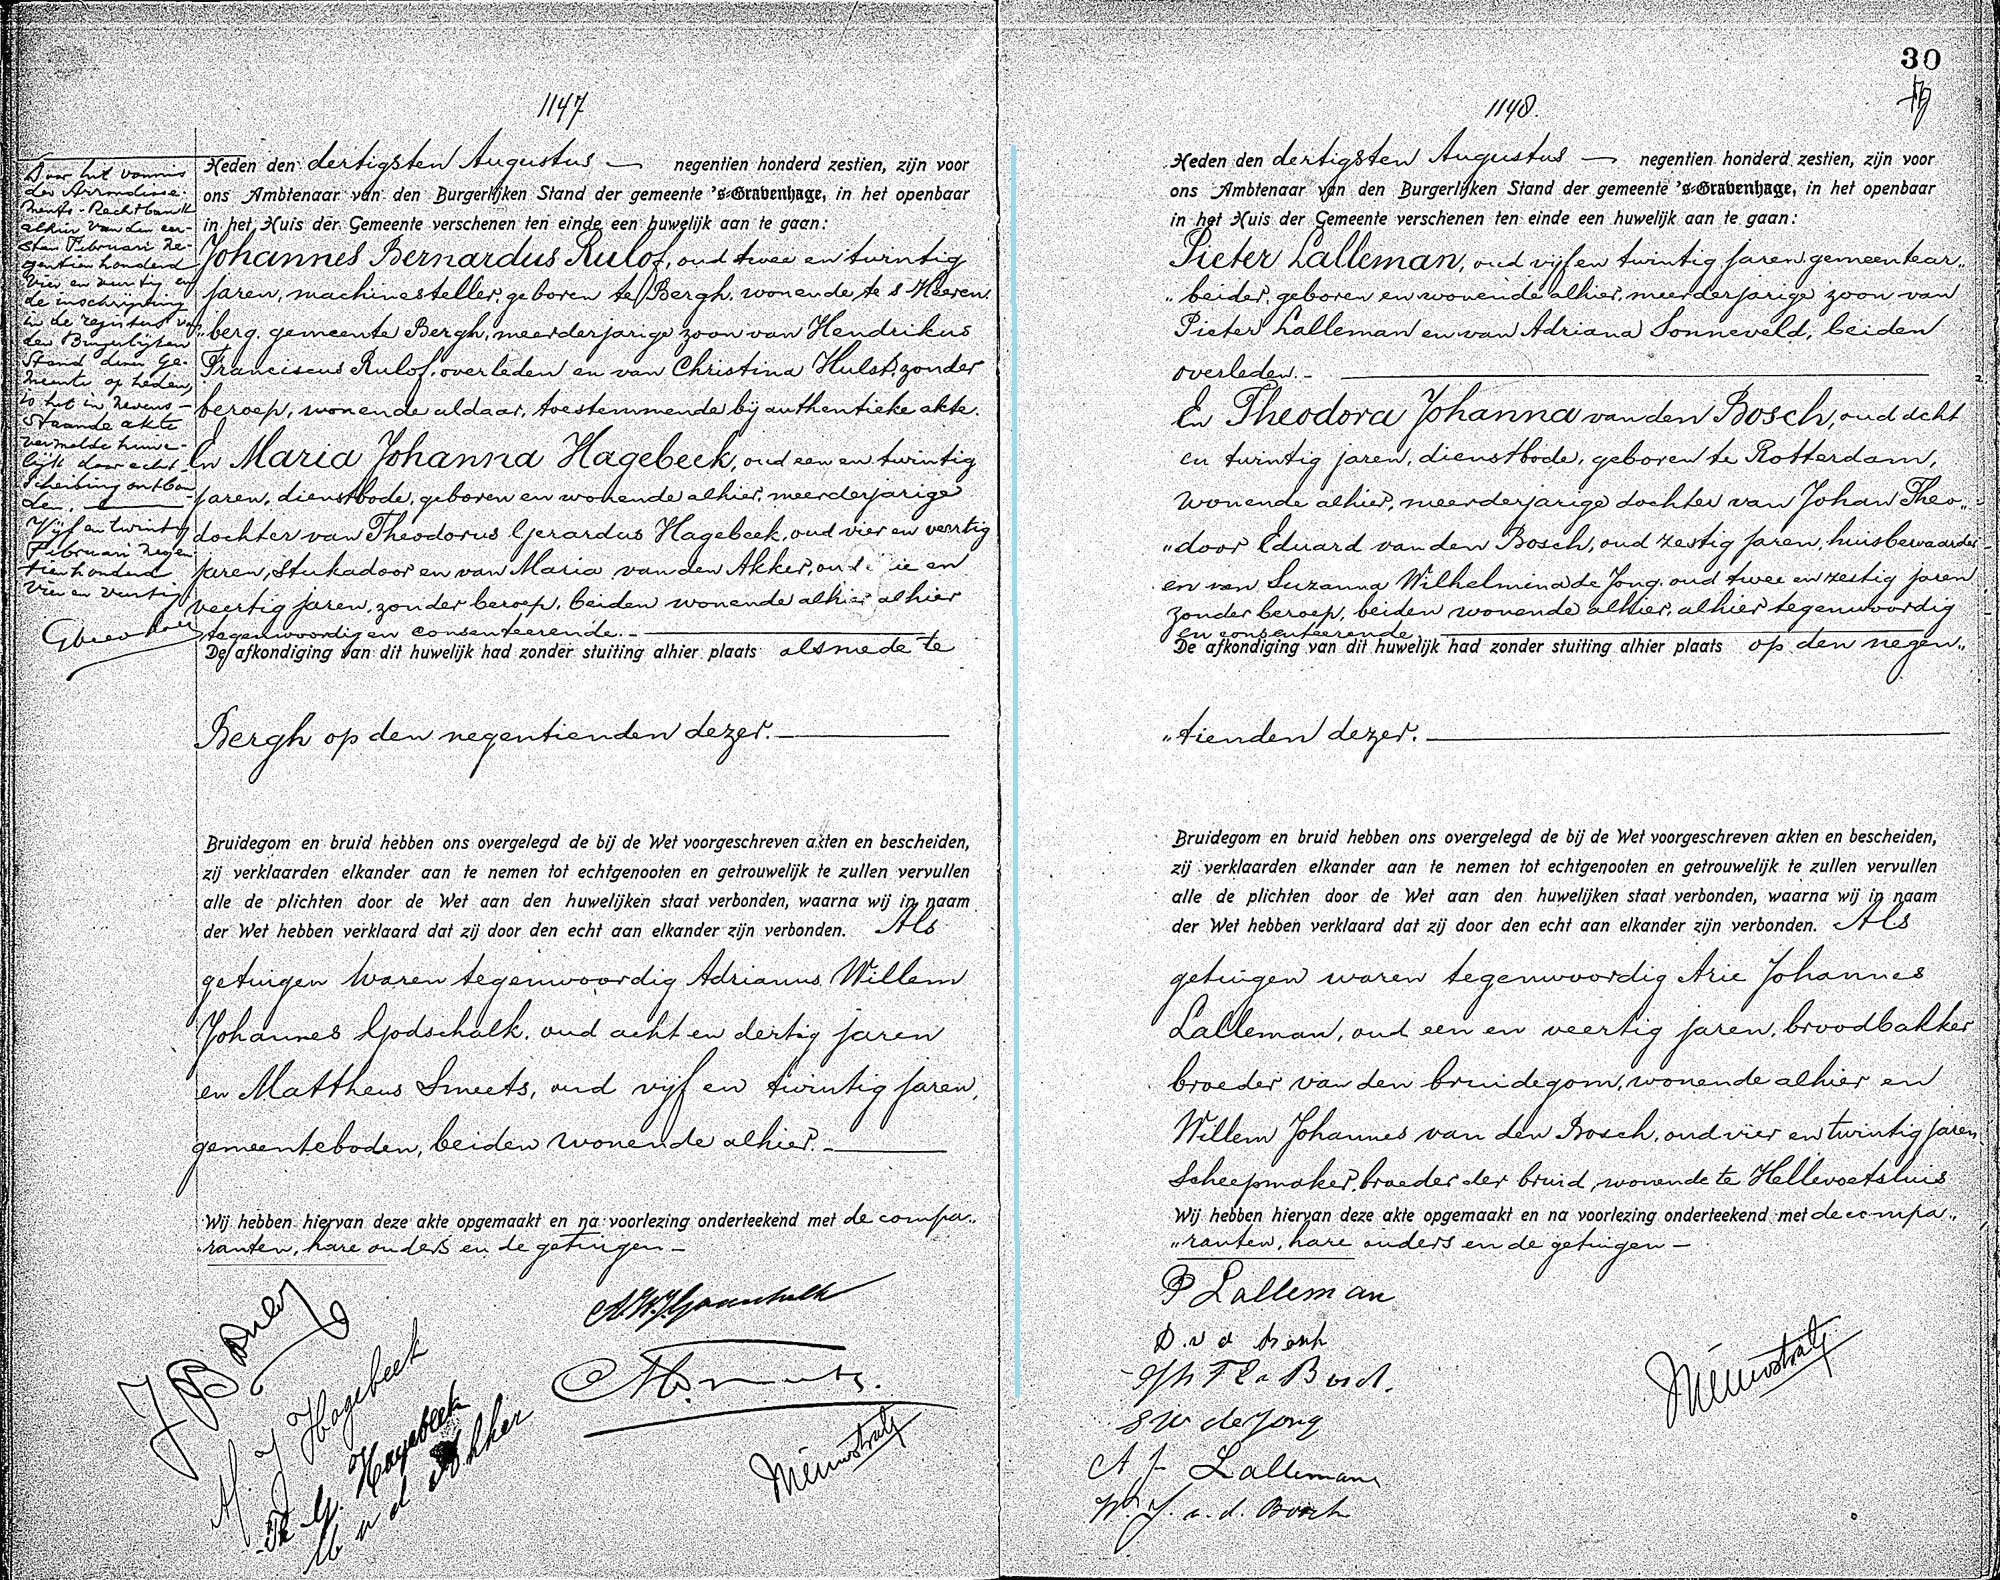 1147
Heden den dertigsten Augustus — negentien honderd zestien, zijn voor
ons Ambtenaar van den Burgerlijken Stand der gemeente 's-Gravenhage, in het openbaar
in het Huis der Gemeente verschenen ten einde een huwelijk aan te gaan:
Johannes Bernardus Rulof, oud twee en twintig
jaren, machinesteller, geboren te Bergh, wonende te s Heeren
"berg, gemeente Bergh, meerderjarige zoon van Hendrikus
Franciscus Rulof, overleden en van Christina Hulst, zonder
beroep, wonende aldaar, toestemmende bij authentieke akte.
En Maria Johanna Hagebeek, oud een en twintig
jaren, dienstbode, geboren en wonende alhier, meerderjarige
dochter van Theodorus Gerardus Hagebeek, oud vier en veertig
jaren, stukadoor en van Maria van den Akker, oud en
veertig jaren, zonder beroep, beiden wonende alhier alhier
tegenwoordig en consenteerende. —
De afkondiging van dit huwelijk had zonder stuiting alhier plaats alsmede te
Bergh op den negentienden dezer. —
Bruidegom en bruid hebben ons overgelegd de bij de Wet voorgeschreven akten en bescheiden,
zij verklaarden elkander aan te nemen tot echtgenooten en getrouwelijk te zullen vervullen
alle de plichten door de Wet aan den huwelijken staat verbonden, waarna wij in naam
der Wet hebben verklaard dat zij door den echt aan elkander zijn verbonden. Als
getuigen waren tegenwoordig Adrianus Willem
Johannes Godschalk, oud acht en dertig jaren
en Mattheus Smeets, oud vijf en twintig jaren,
gemeenteboden, beiden wonende alhier. —
Wij hebben hiervan deze akte opgemaakt en na voorlezing onderteekend met de compa„
"ranten, hare ouders en de getuigen —
Door het vonnis
der Arrondisse-
ments-Rechtbank
alhier van den eer-
sten Februari ne-
gentien honderd
vier en twintig en
de inschrijving
in de registers van
den Burgerlijken
Stand dezer ge-
meente op heden,
is het in nevens-
staande akte
vermelde huwe-
lijk door echt-
scheiding ontbon
den. —
Vijf en twintig
Februari negen
tien honderd
vier en twintig
J B Rulof
M. J Hagebeek
Th G. Hagebeek
M v d Akker
A.W.J. Godschalk
M Smeets.
Nieuwstraten
30
1148.
Heden den dertigsten Augustus — negentien honderd zestien, zijn voor
ons Ambtenaar van den Burgerlijken Stand der gemeente 's-Gravenhage, in het openbaar
in het Huis der Gemeente verschenen ten einde een huwelijk aan te gaan:
Pieter Lalleman, oud vijf en twintig jaren, gemeentear„
"beider, geboren en wonende alhier, meerderjarige zoon van
Pieter Lalleman en van Adriana Sonneveld, beiden
overleden. —
En Theodora Johanna van den Bosch, oud acht
en twintig jaren, dienstbode, geboren te Rotterdam,
wonende alhier, meerderjarige dochter van Johan Theo„
"door Eduard van den Bosch, oud zestig jaren, huisbewaarder
en van Suzanna Wilhelmina de Jong, oud twee en zestig jaren
zonder beroep, beiden wonende alhier, alhier tegenwoordig
en consenteerende. —
De afkondiging van dit huwelijk had zonder stuiting alhier plaats op den negen„
"tienden dezer. —
Bruidegom en bruid hebben ons overgelegd de bij de Wet voorgeschreven akten en bescheiden,
zij verklaarden elkander aan te nemen tot echtgenooten en getrouwelijk te zullen vervullen
alle de plichten door de Wet aan den huwelijken staat verbonden, waarna wij in naam
der Wet hebben verklaard dat zij door den echt aan elkander zijn verbonden. Als
getuigen waren tegenwoordig Arie Johannes
Lalleman, oud een en veertig jaren, broodbakker
broeder van den bruidegom, wonende alhier en
Willem Johannes van den Bosch, oud vier en twintig jaren,
scheepmaker, broeder der bruid, wonende te Hellevoetsluis
Wij hebben hiervan deze akte opgemaakt en na voorlezing onderteekend met de compa„
"ranten, hare ouders en de getuigen —
P Lalleman
D. v d Bosch
Bosch.
S W de Jong
A J Lalleman
W. J. v. d. Bosch
Nieuwstraten